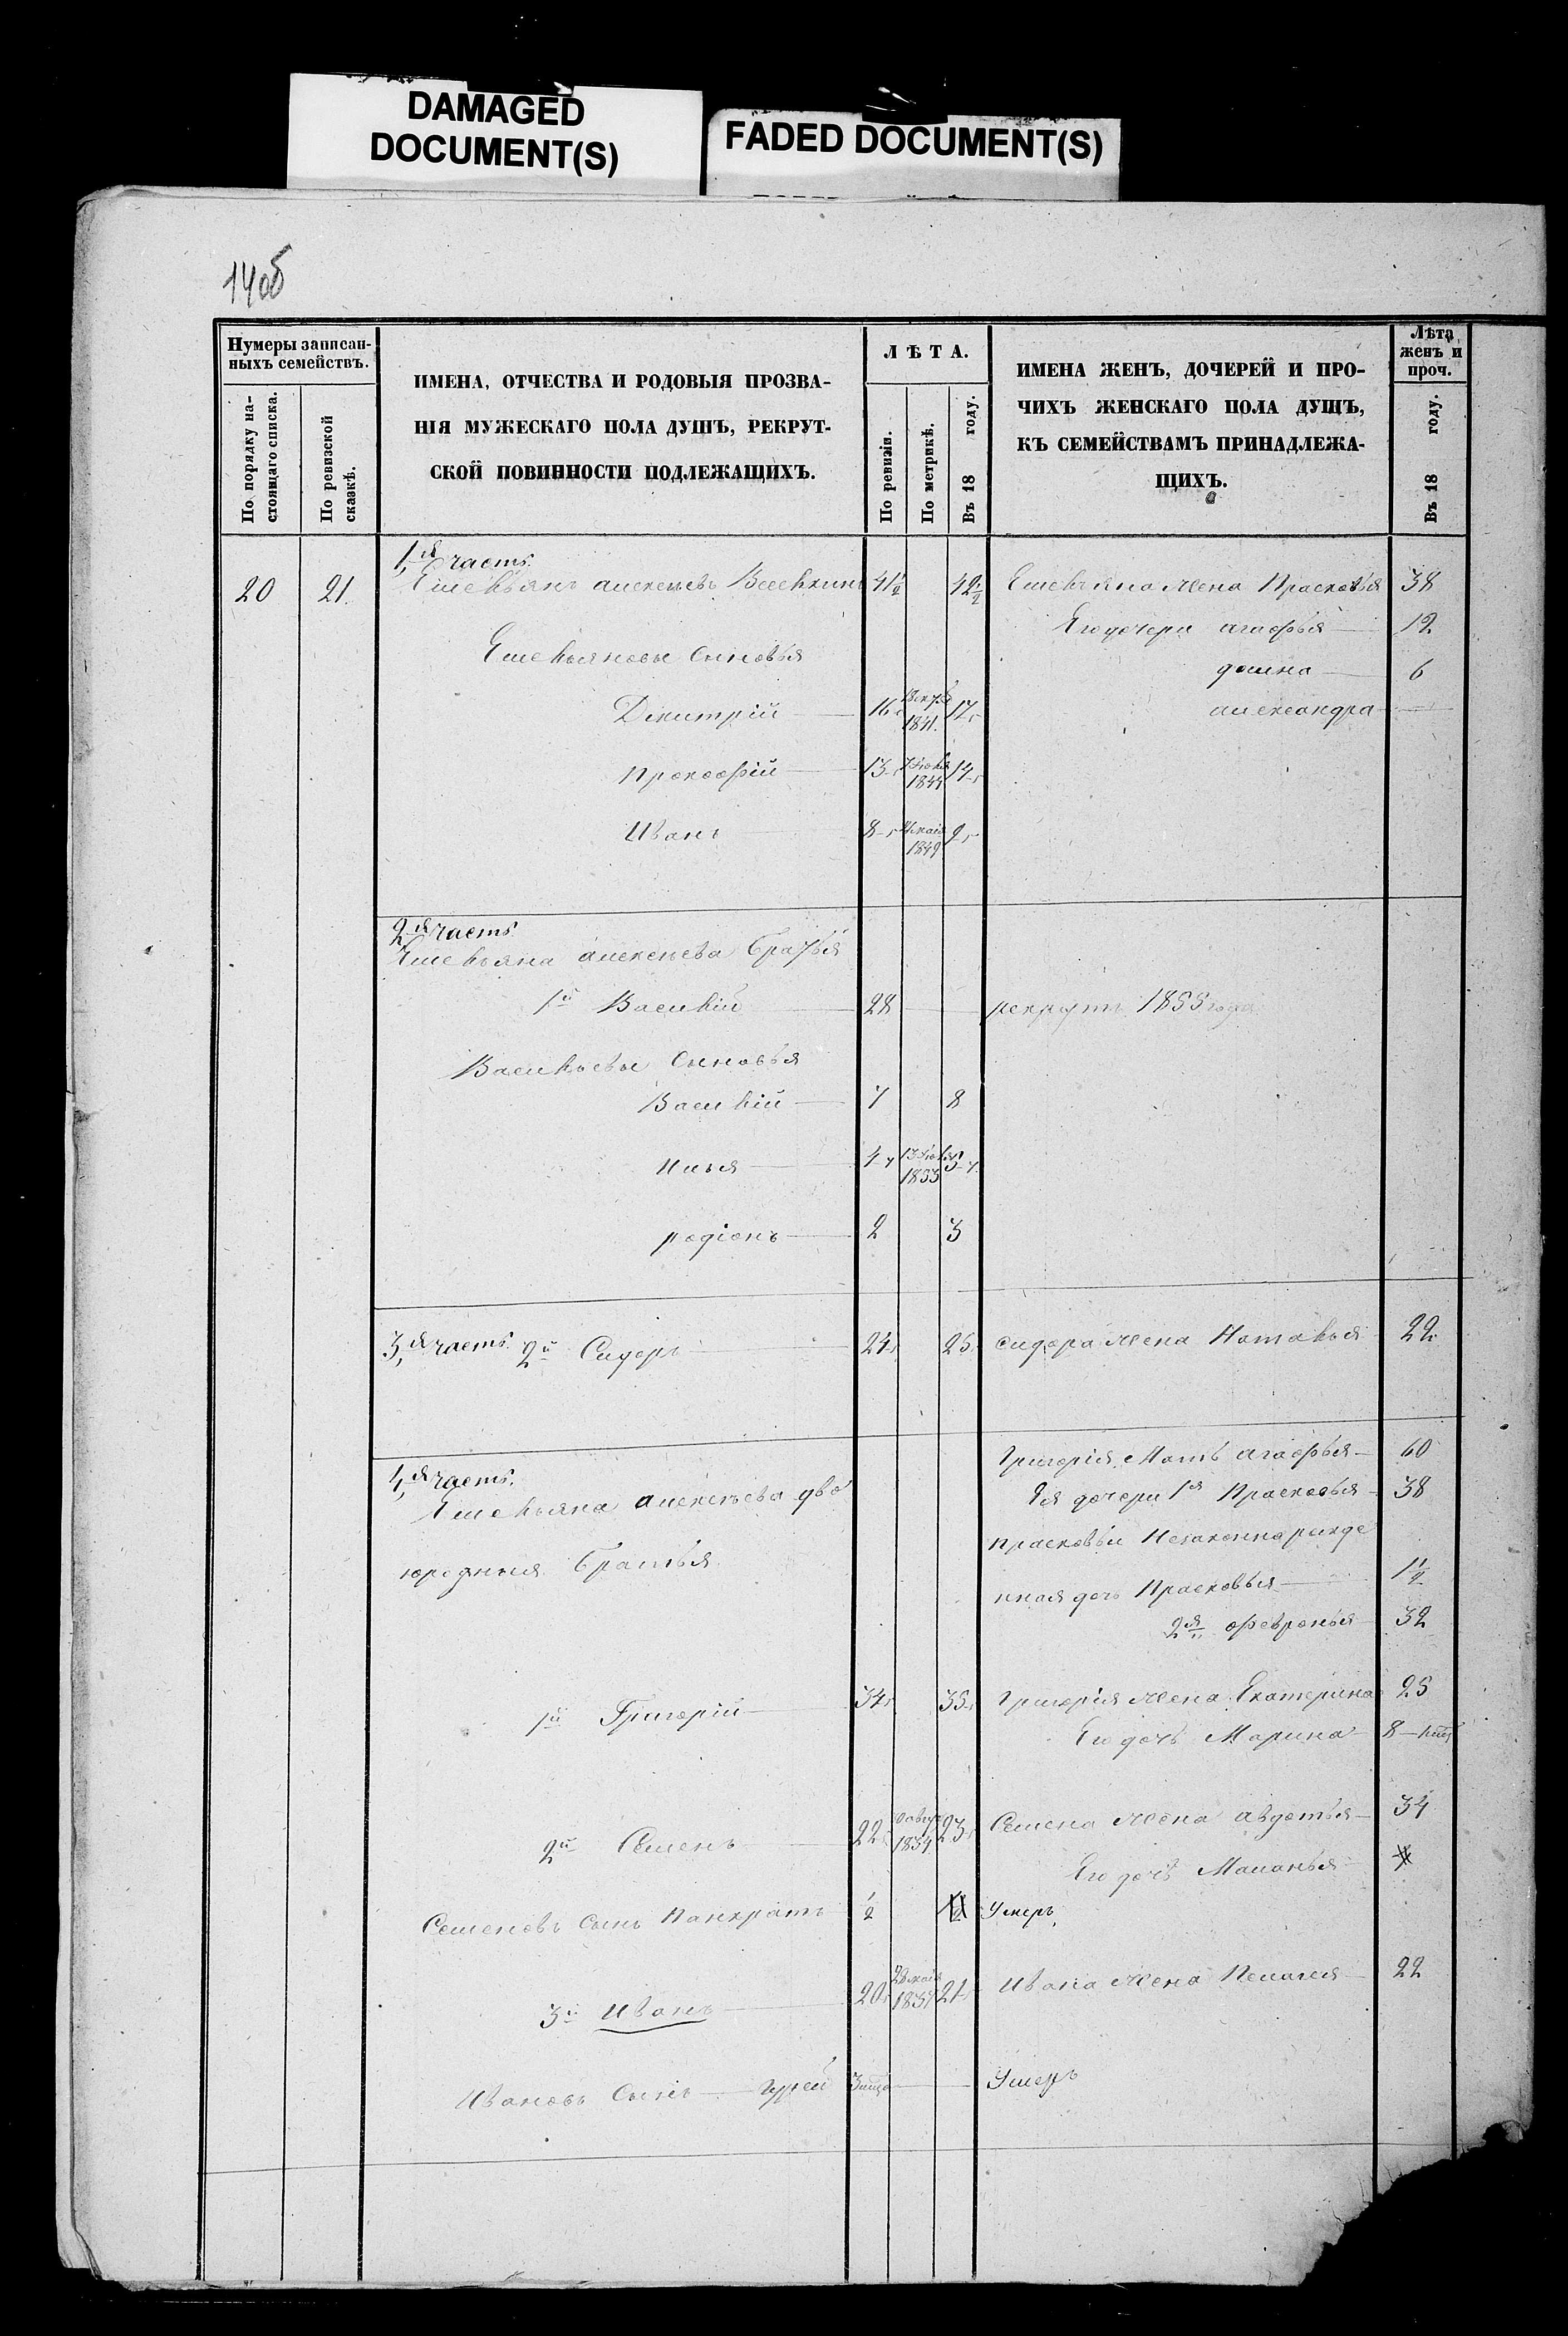 DAMAGED
DOCUMENT(S)
FADED DOCUMENT(S)
14об
Нумеры записан-
ныхъ семействъ.
По порядку на-
стоящаго списка.
По ревизской
сказкѣ.
ИМЕНА, ОТЧЕСТВА И РОДОВЫЯ ПРОЗВА-
НІЯ МУЖЕСКАГО ПОЛА ДУШЪ, РЕКРУТ-
СКОЙ ПОВИННОСТИ ПОДЛЕЖАЩИХЪ.
ЛѢТА.
По ревизіи.
По метрикѣ.
Въ 18 году.
ИМЕНА ЖЕНЪ, ДОЧЕРЕЙ И ПРО-
ЧИХЪ ЖЕНСКАГО ПОЛА ДУШЪ,
КЪ СЕМЕЙСТВАМЪ ПРИНАДЛЕЖА-
ЩИХЪ.
Лѣта
женъ и
проч.
Въ 18 году.
1я часть.
20 21. Емельянъ алексѣевъ 41½ 42½ Емельяна жена Прасковья 38
Его дочери агафья 12
Емельяновы сыновья
домна 6
Димитрій 16 1841. 17 александра
Прокофій 13 1844 14
Иванъ 8 мая 1849 9
2я часть
Емельяна алексѣева братья
1й Василій 28 рекрутъ 1855 года
Васильевы сыновья
Василій 7 8
Илья 4 13 1853 5
родіонъ 2 3
3я часть. 2й Сидоръ 24 25 сидора жена Наталья 22
4я часть.
Григорія Мать агафья 60
Ея дочери 1я Прасковья 38
Емельяна алексѣева дво
юродныя братья
прасковьи Незаконнорожде
нная дочь Прасковья 1½
2я февронья 32
1й Григорій 34 35 Григорія жена Екатерина 25
Его дочь Марина 8
2й Семенъ 22 1834 23 Семена жена авдотья 34
Его дочь Маланья
Семеновъ сынъ Панкратъ ½ Умеръ
3й Иванъ 20 мая 1837 21 Ивана жена Пелагея 22
Ивановъ сынъ гурей 3 Умеръ